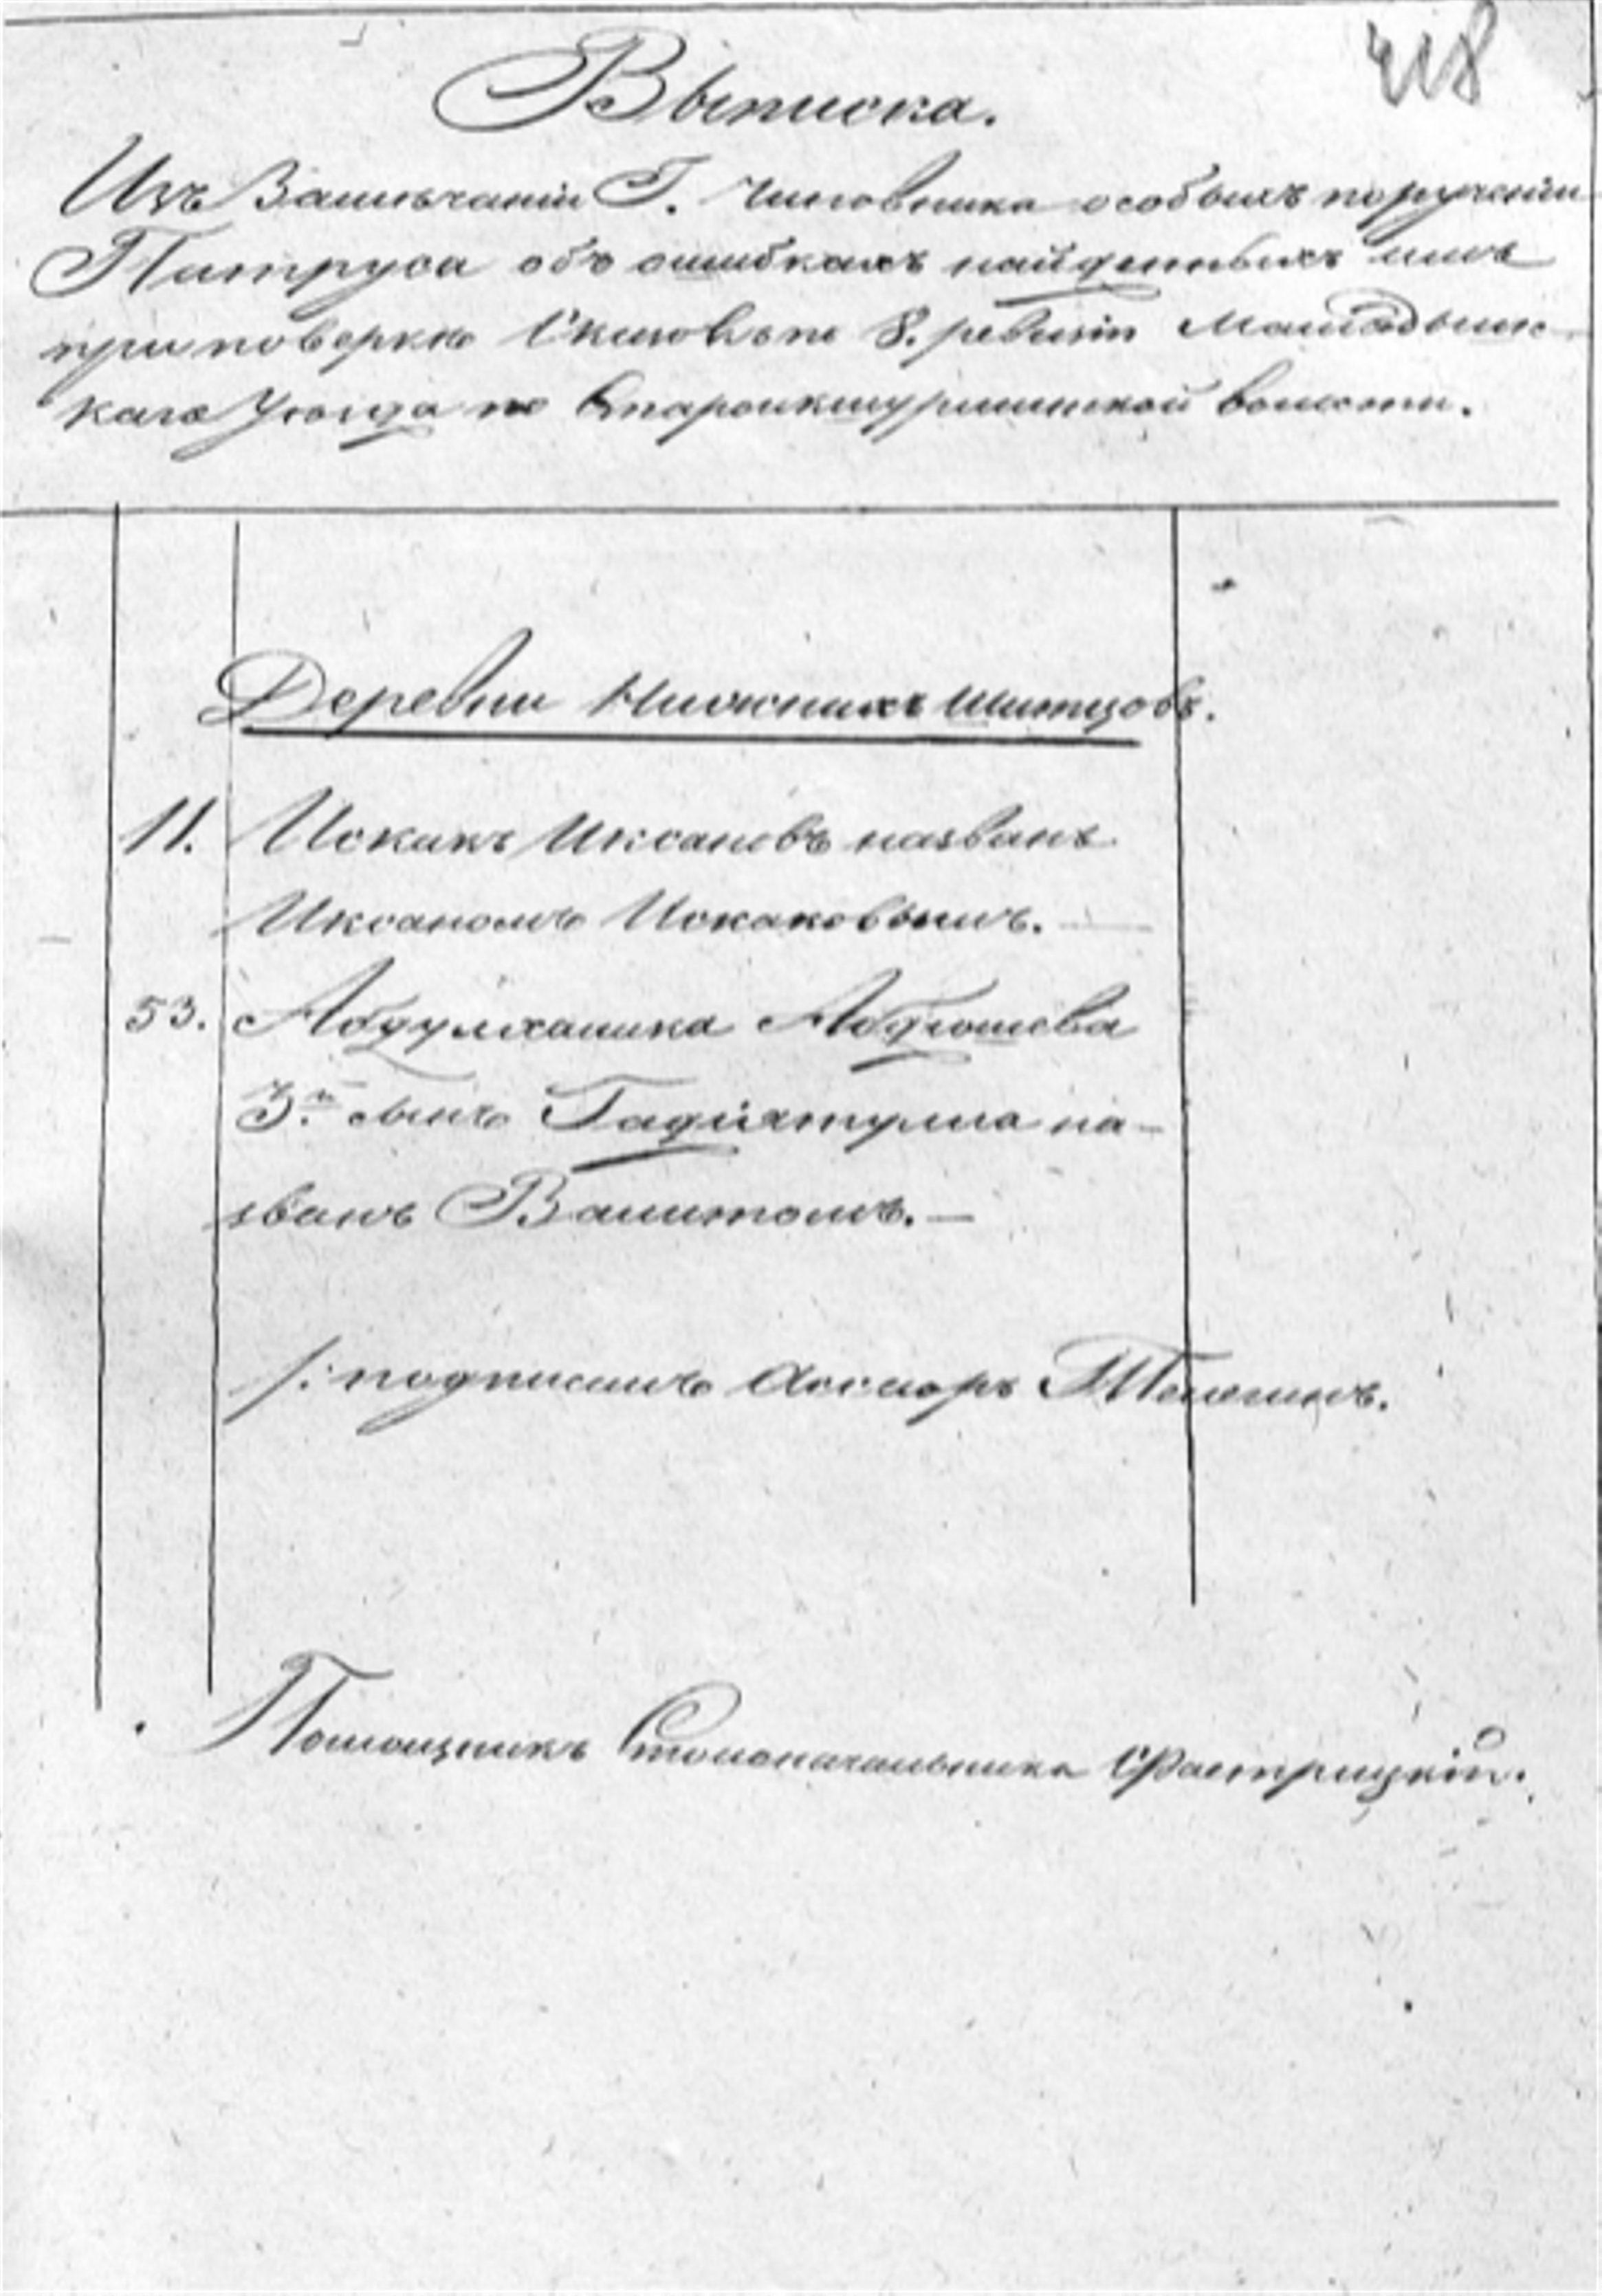 418
Выписка.
Изъ Замѣчаній Г. Чиновника особыхъ порученій
Патруса объ ошибкахъ найденныхъ имъ
при повѣркѣ Сказокъ по 8. ревизіи Мамадышс-
каго Уѣзда по Староикшурминской волости.
Деревни Нижнихъ Шитцовъ.
11. Искакъ Иксановъ названъ
Иксаномъ Искаковымъ.
53. Абдулханика Абдюшева
3й сынъ Гадіятулла на-
званъ Вашитомъ. —
/: подписалъ Ассесоръ
Помощникъ Столоначальника